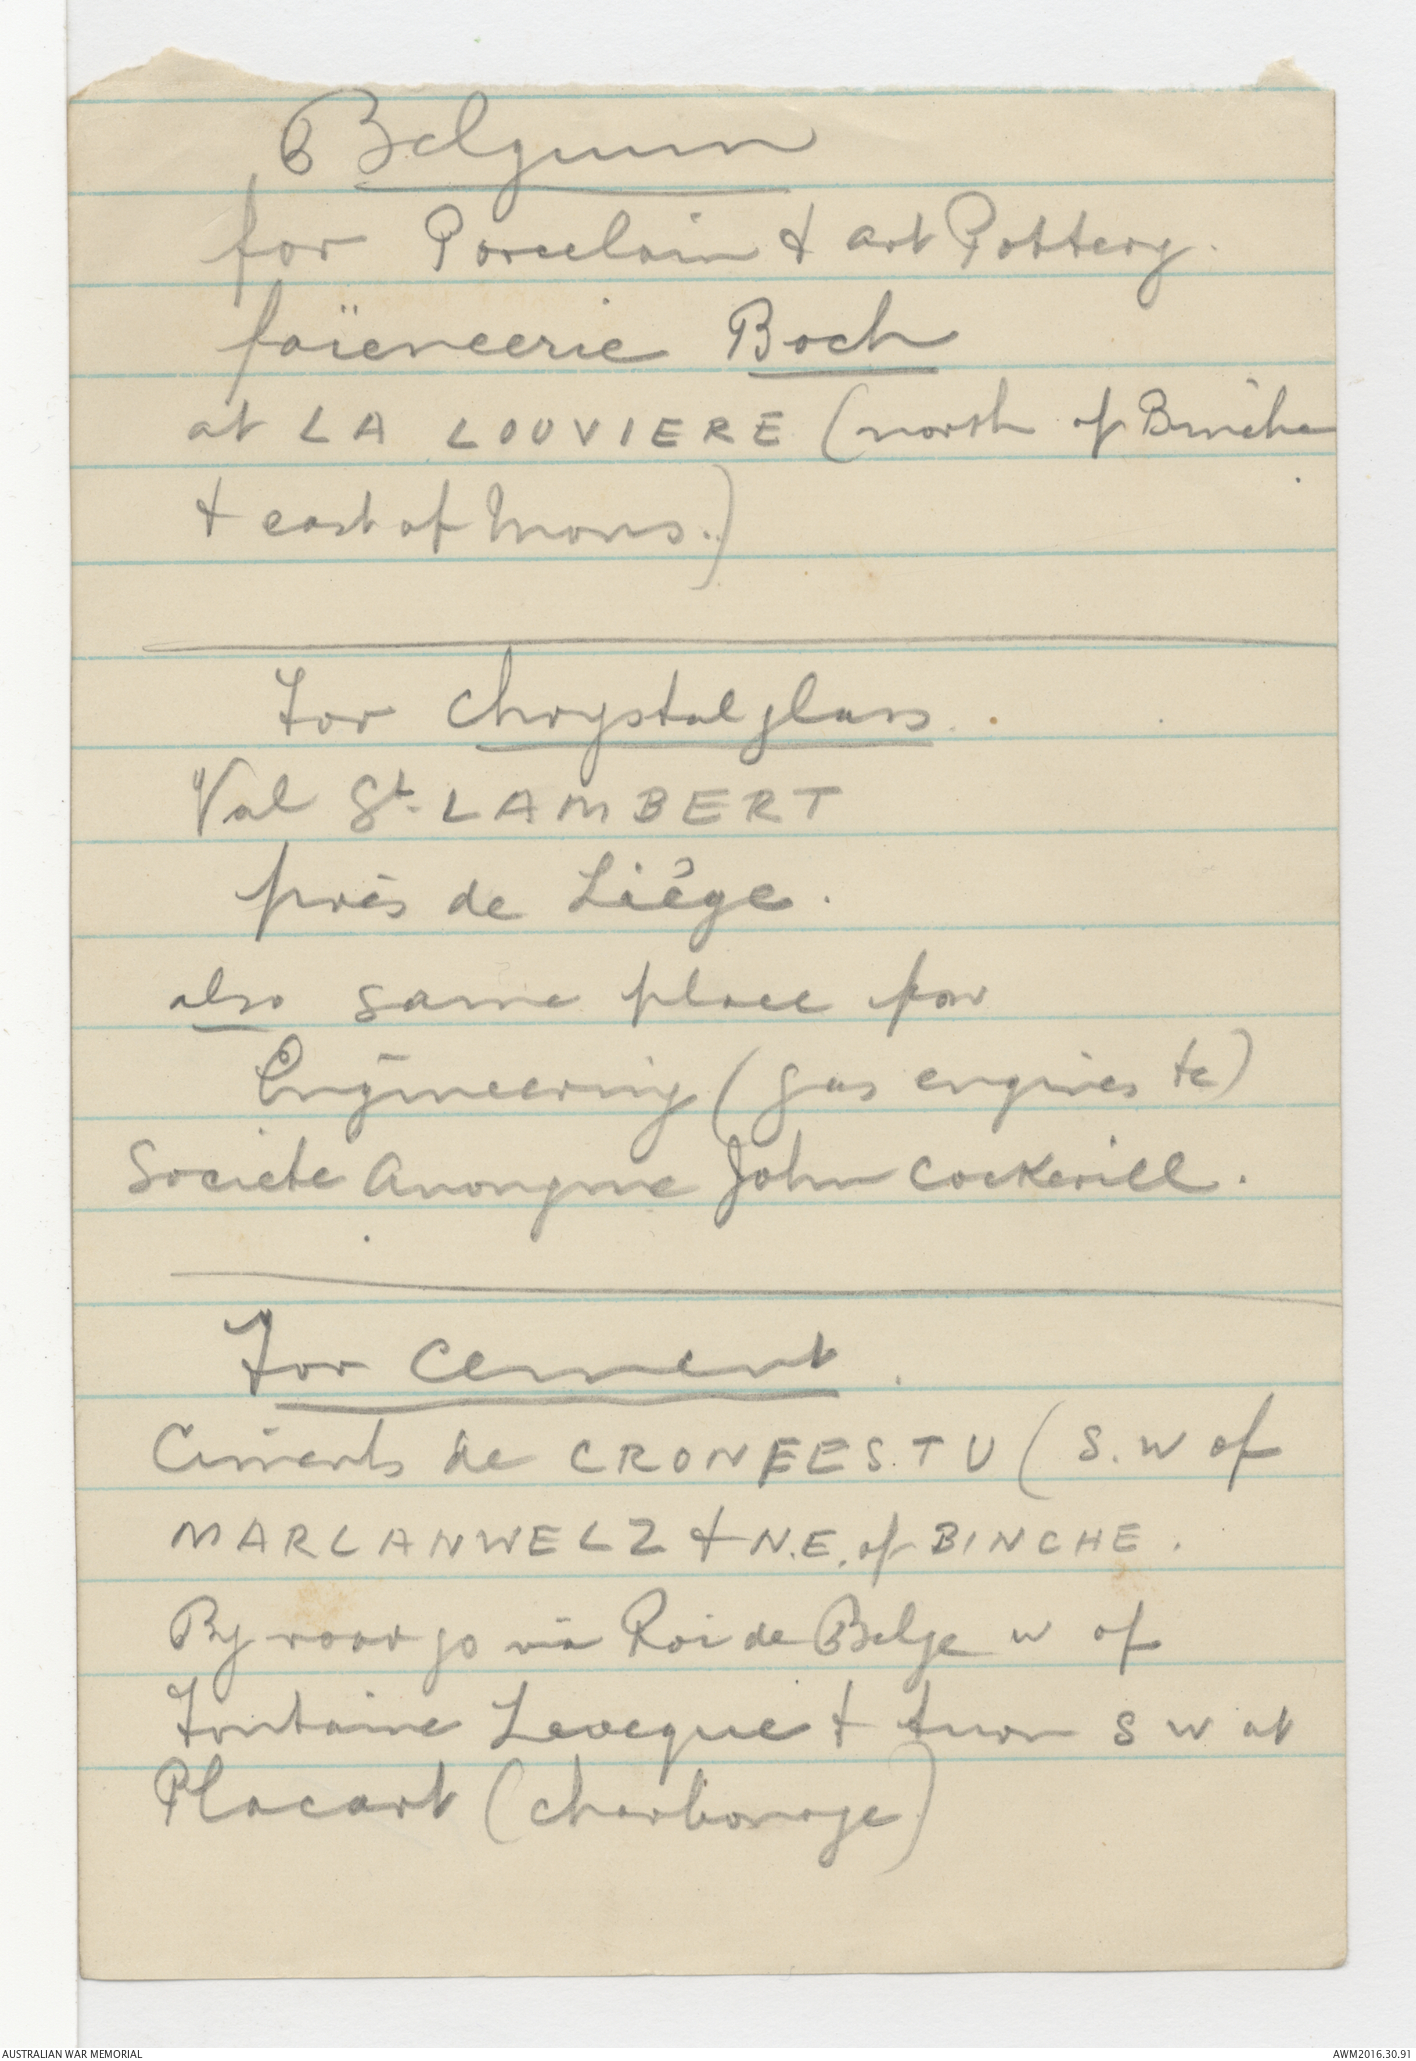 Belgium
for Porcelain & art Pottery.
faïencerie Boch
at LA LOUVIERE (north of Binche
& east of Mons.)
For Chrystal glass.
Val St. LAMBERT
près de Liège.
also same place for
Engineering (gas engines &c)
Societe Anonyme John Cockerill.
For Cement.
Ciments de CRONFESTU (S.W of
MARLANWELZ & N.E. of BINCHE.
By road go via Roi de Belge W of
Fontaine Leveque & turn S W at
Placart (charbonage)
AUSTRALIAN WAR MEMORIAL
AWM2016.30.91